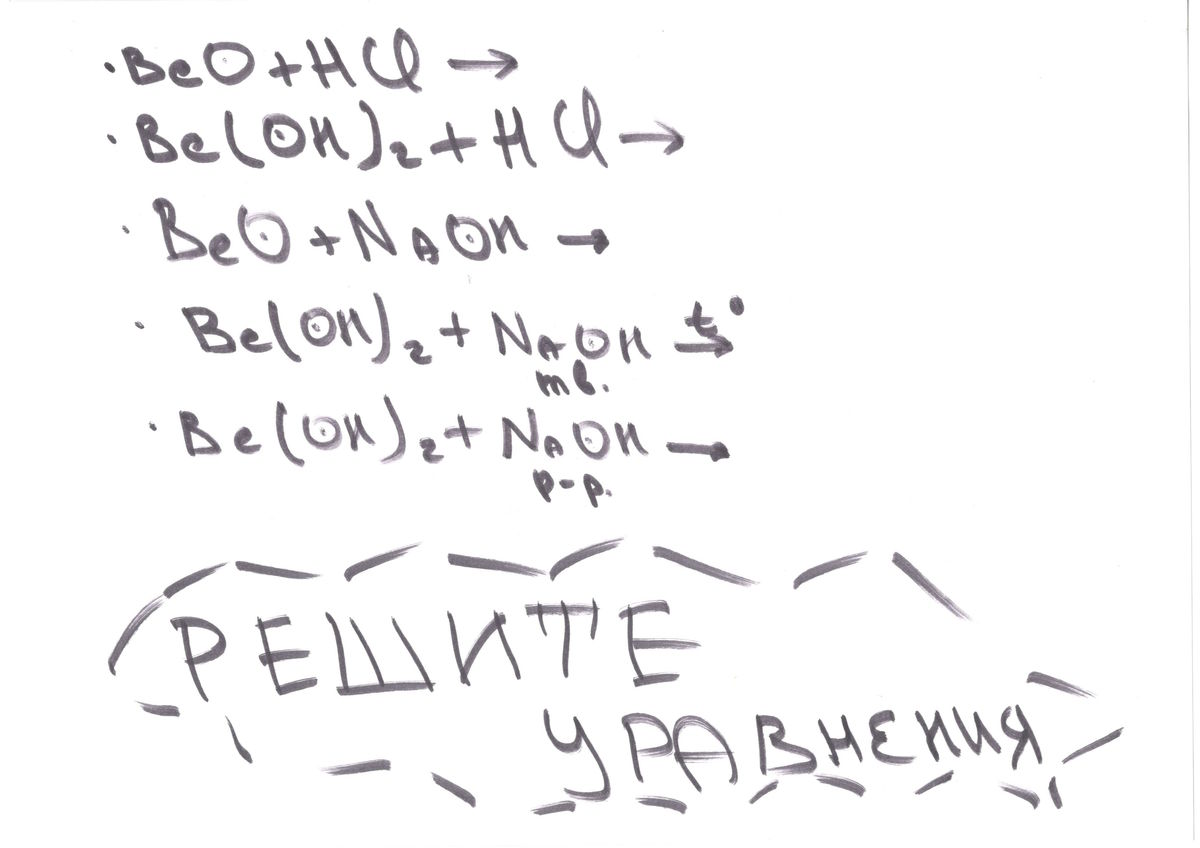 · BeO + HCl →
· Be(OH)₂ + HCl →
· BeO + NaOH →
· Be(OH)₂ + NaOH t° →
тв.
· Be(OH)₂ + NaOH →
р-р.
РЕШИТЕ
УРАВНЕНИЯ